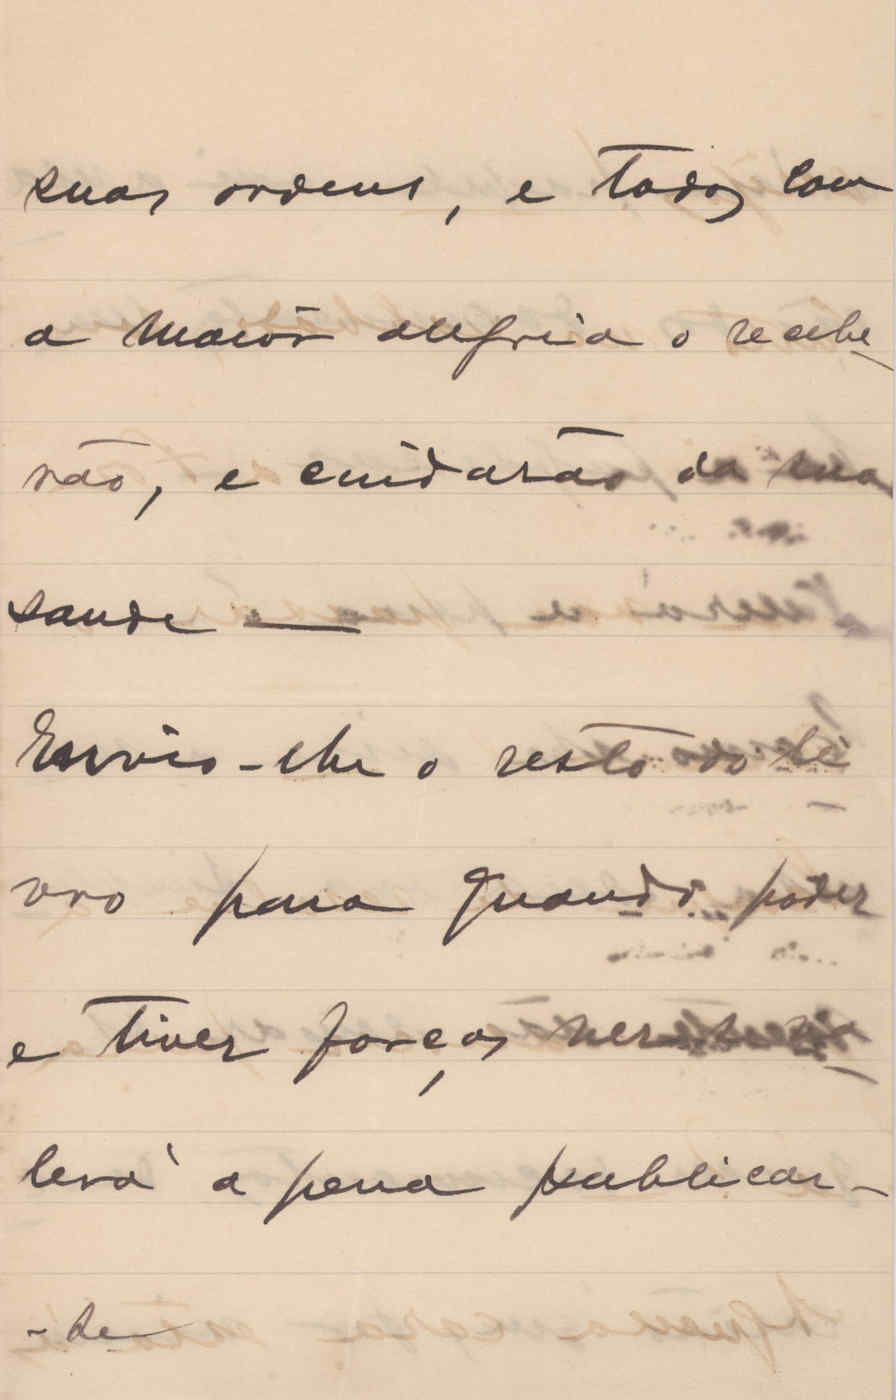 suas ordens, e todos com
a maior alegria o recebe-
rão, e cuidarão da sua
saude —
Envio-lhe o resto do li
vro para quando poder
e tiver forças
lerá a pena publicar-
-se